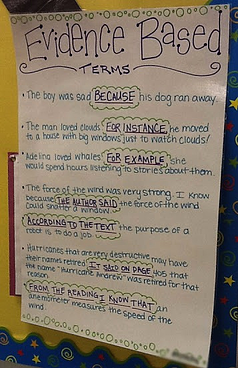 Evidence Based
TERMS
• The boy was sad BECAUSE his dog ran away.
• The man loved clouds FOR INSTANCE, he moved
to a house with big windows just to watch clouds!
• Adelina loved whales FOR EXAMPLE, she
would spend hours listening to stories about them.
• The force of the wind was very strong. I know
because THE AUTHOR SAID the force of the wind
could shatter a window.
• ACCORDING TO THE TEXT the purpose of a
robot is to do a job.
• Hurricanes that are very destructive may have
their names retired. IT SAID ON PAGE 405 that
the name "Hurricane Andrew" was retired for that
reason.
• FROM THE READING I KNOW THAT an
anemometer measures the speed of the
wind.